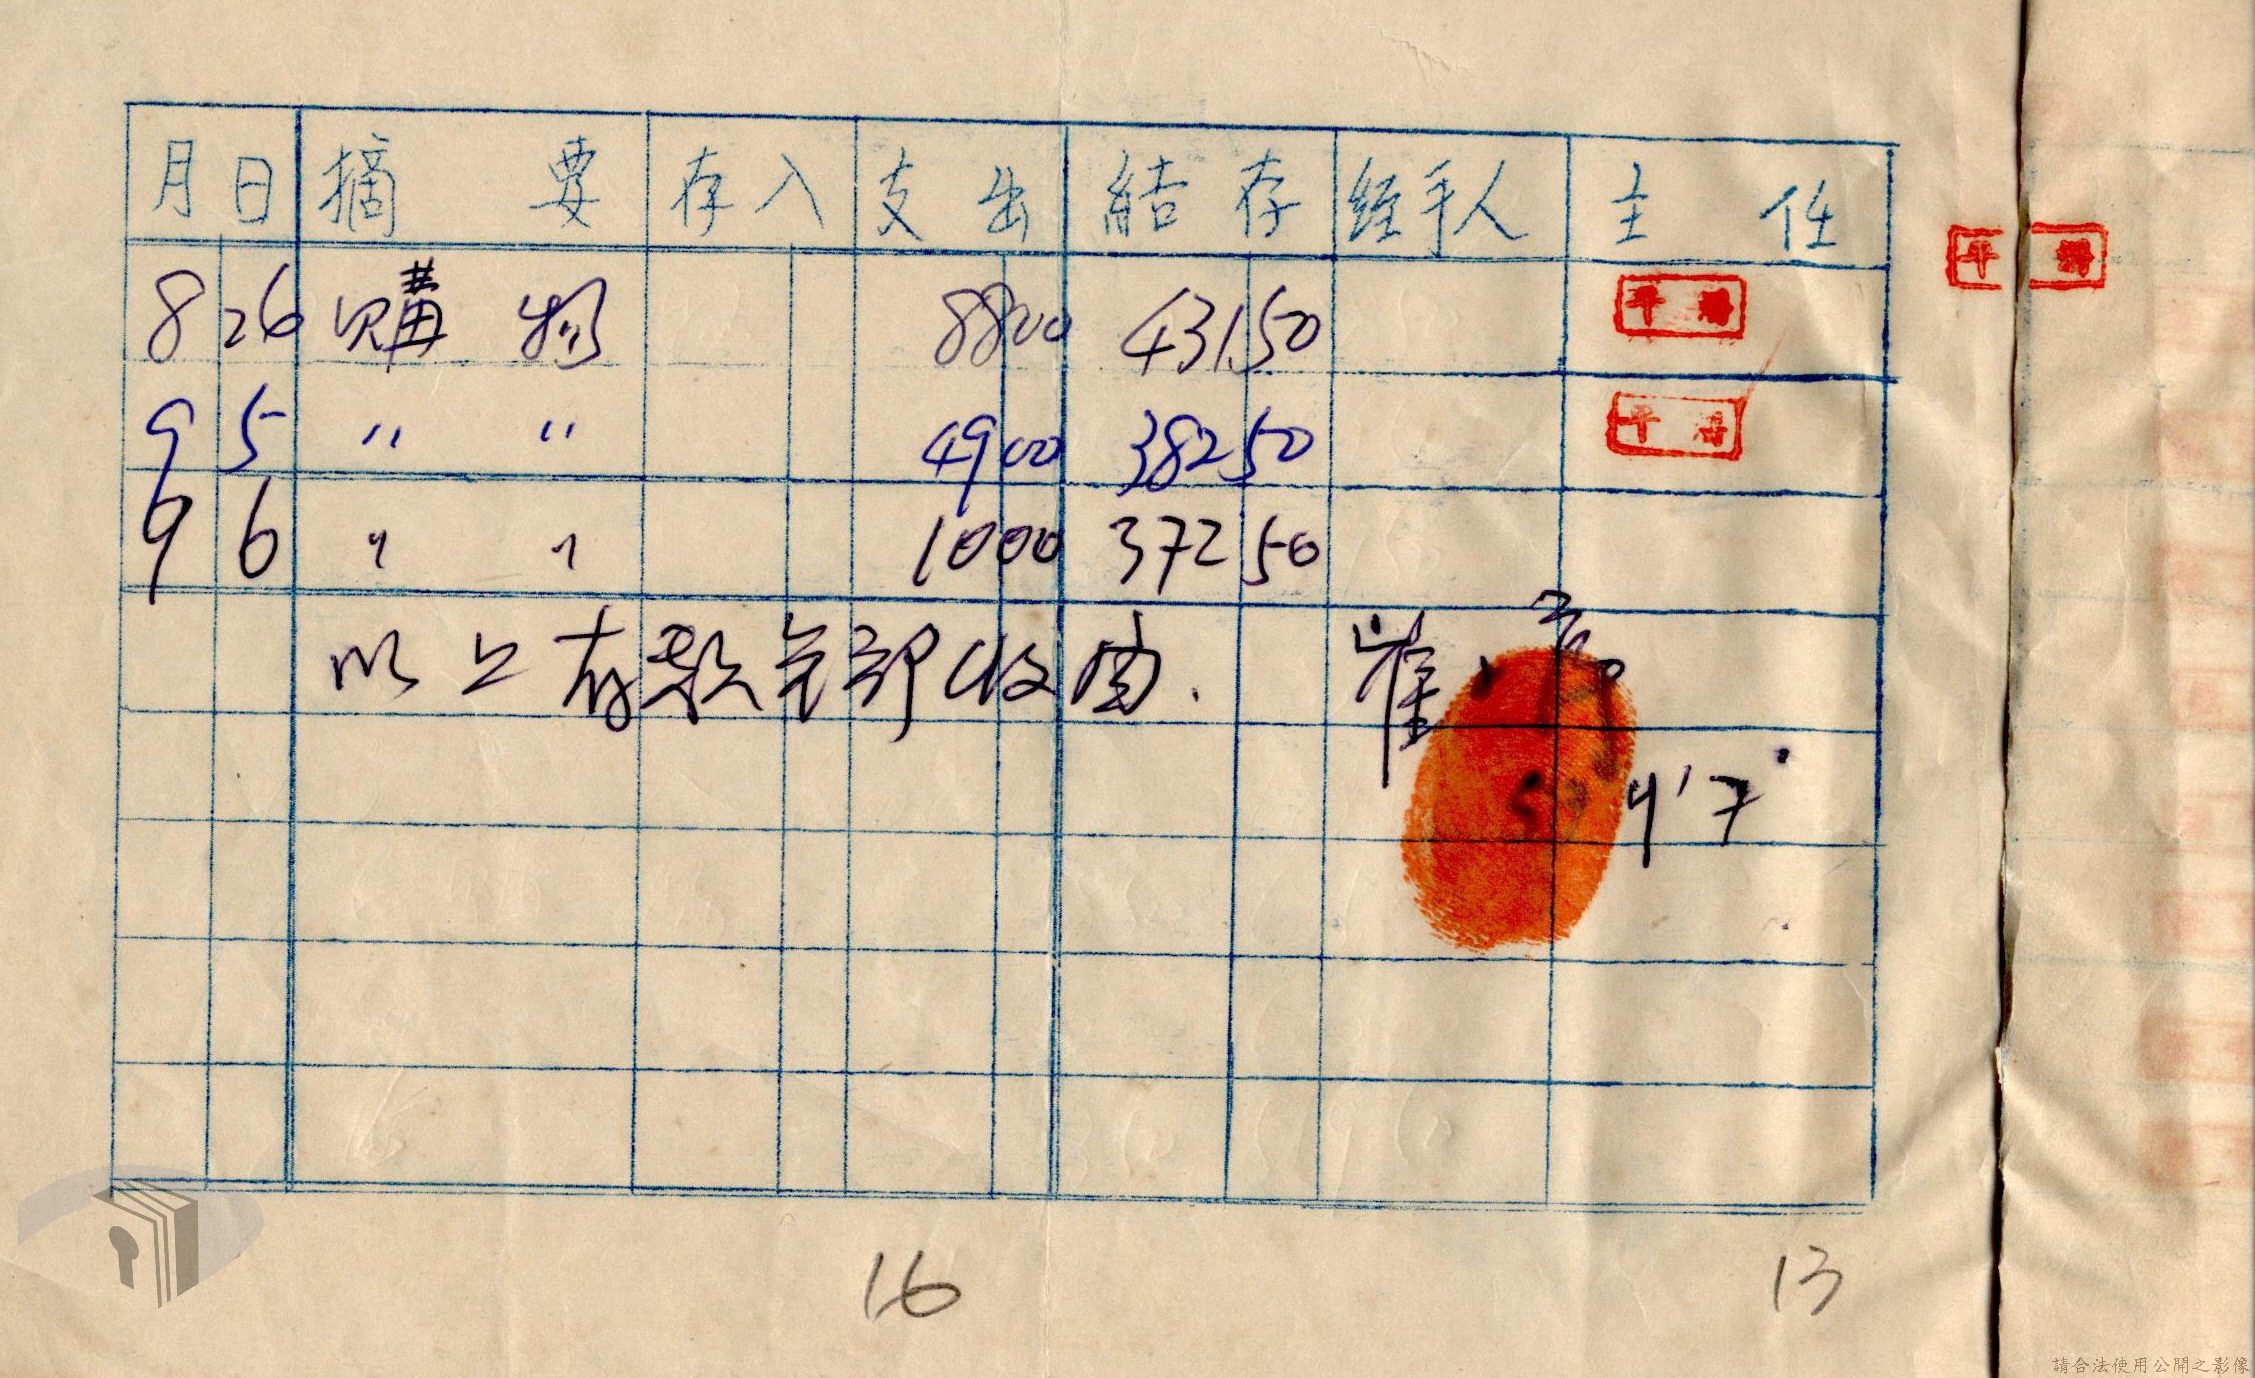 月 日 摘 要 存入 支出 結存 經手人 主任
8 26 購物 8800 431.50
9 5 〃 〃 4900 38250
9 6 〃 〃 1000 37250
以上存款全部收
崔
9'7
16
13
請合法使用公開之影像